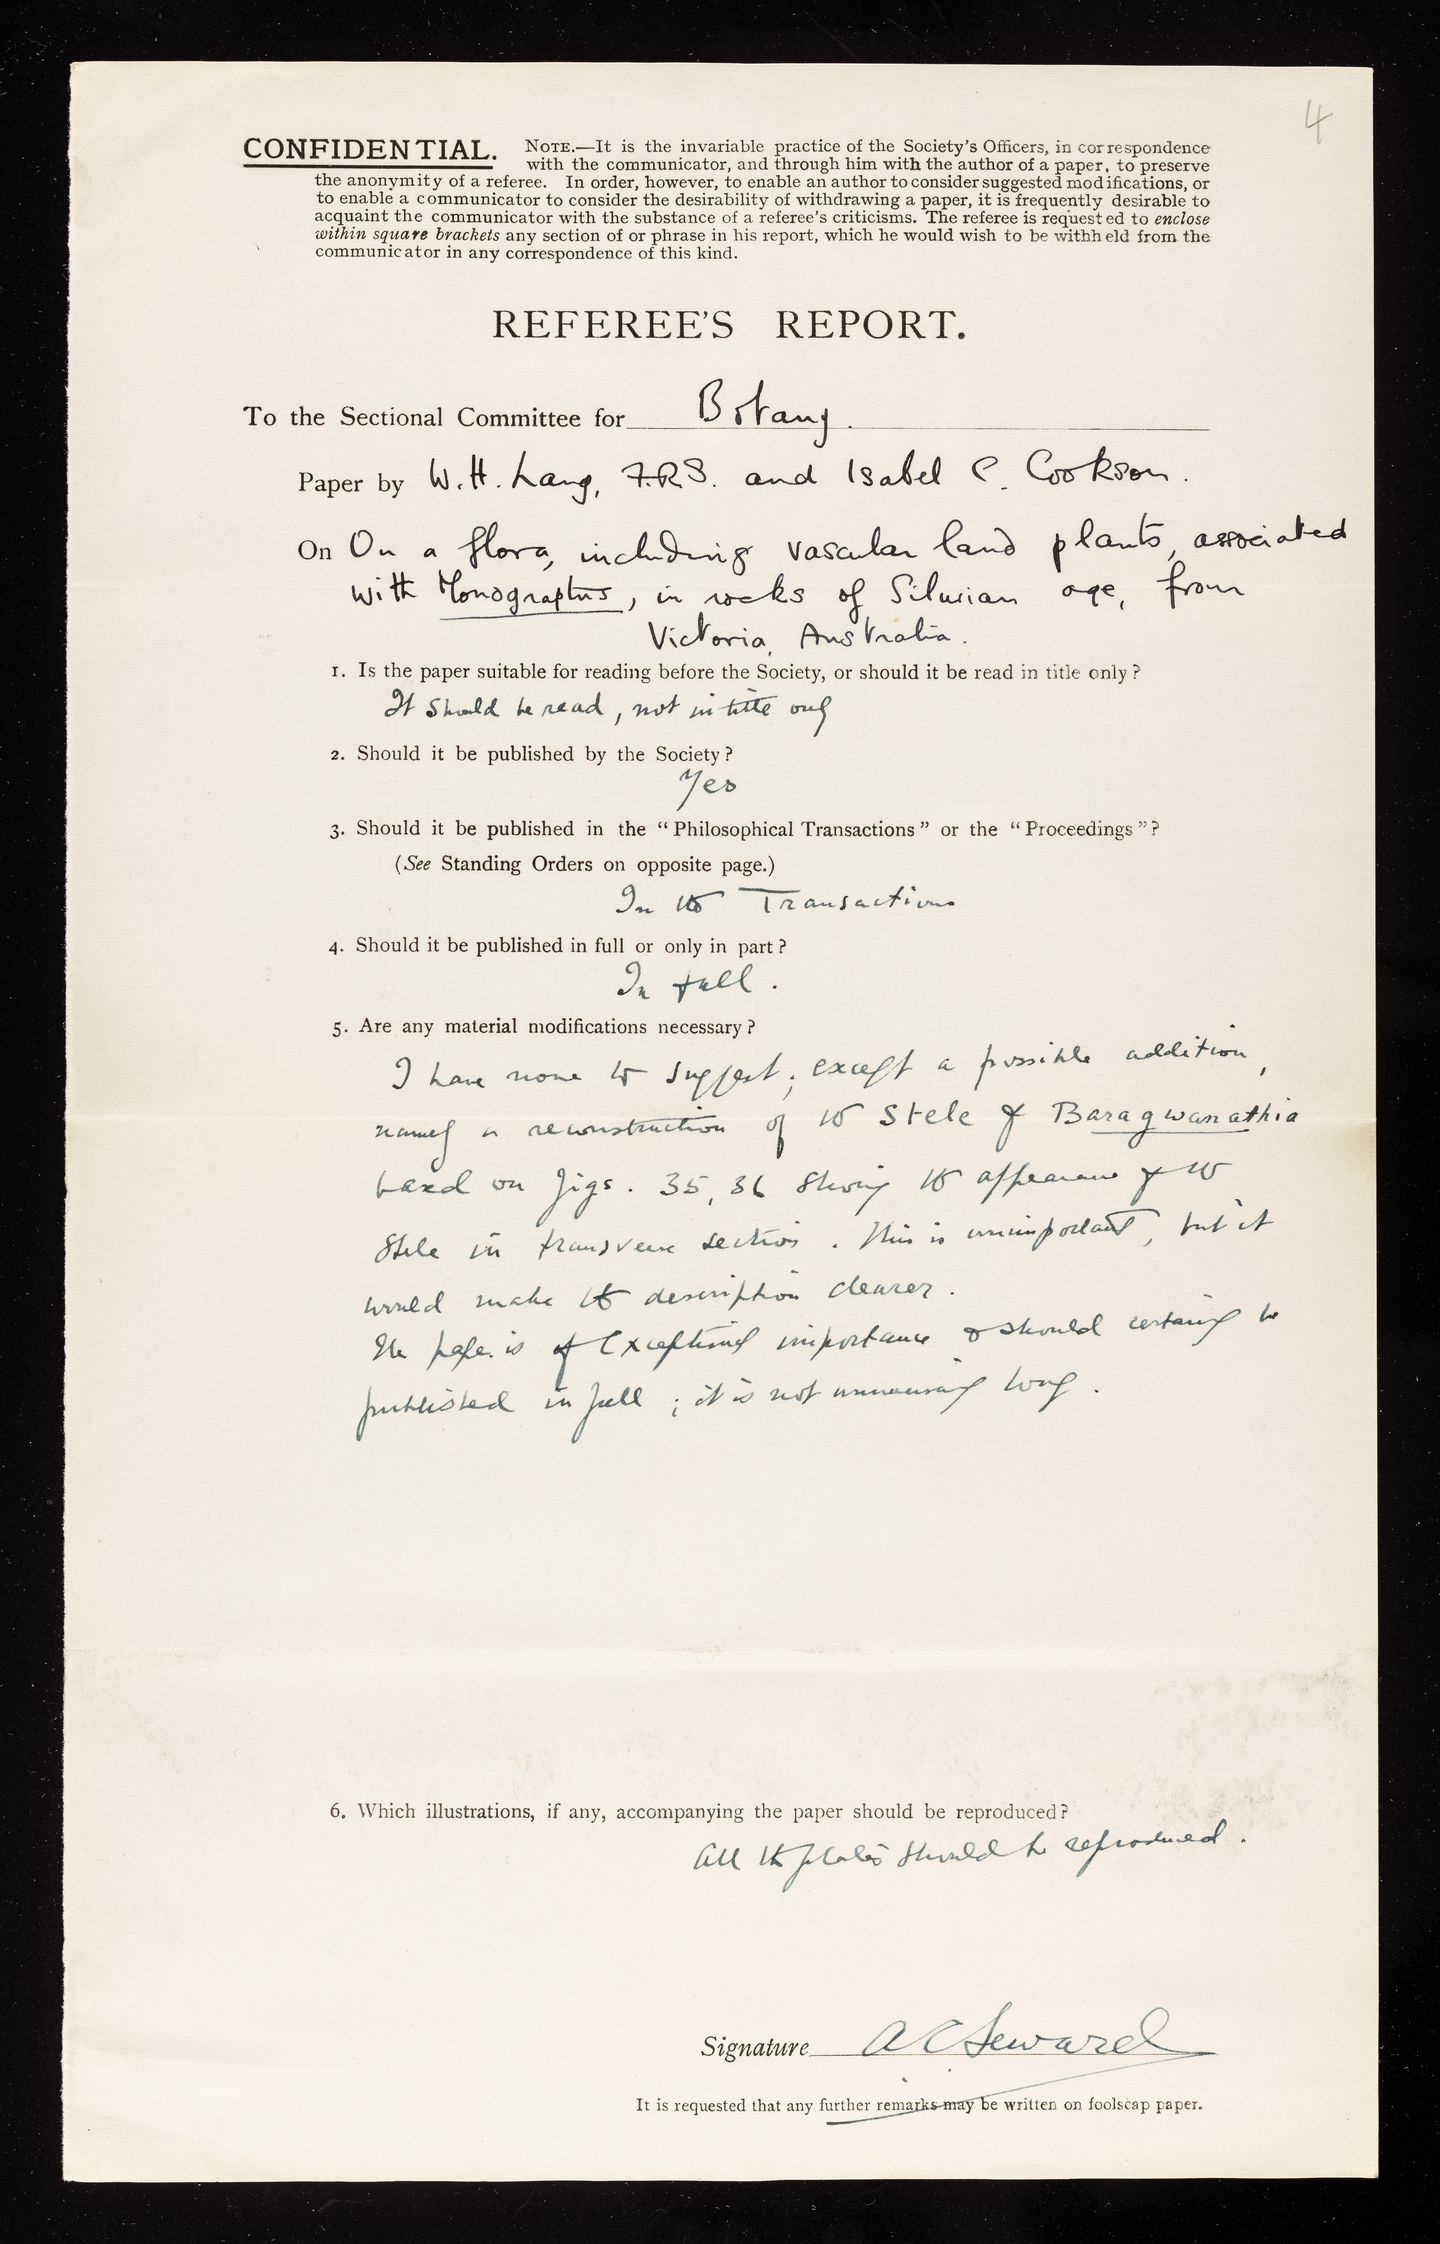 4
CONFIDENTIAL. NOTE.—It is the invariable practice of the Society's Officers, in correspondence
with the communicator, and through him with the author of a paper, to preserve
the anonymity of a referee. In order, however, to enable an author to consider suggested modifications, or
to enable a communicator to consider the desirability of withdrawing a paper, it is frequently desirable to
acquaint the communicator with the substance of a referee's criticisms. The referee is requested to enclose
within square brackets any section of or phrase in his report, which he would wish to be withheld from the
communicator in any correspondence of this kind.
REFEREE'S REPORT.
To the Sectional Committee for Botany.
Paper by W. H. Lang, F.R.S. and Isabel C. Cookson.
On On a flora, including vascular land plants, associated
with Monograptus, in rocks of Silurian age, from
Victoria, Australia.
1. Is the paper suitable for reading before the Society, or should it be read in title only?
It should be read, not in title only
2. Should it be published by the Society?
Yes
3. Should it be published in the "Philosophical Transactions" or the "Proceedings"?
(See Standing Orders on opposite page.)
In the Transactions
4. Should it be published in full or only in part?
In full.
5. Are any material modifications necessary?
I have none to suggest; except a possible addition,
namely a reconstruction of the stele of Baragwanathia
based on figs. 35, 36 showing the appearance of the
stele in transverse section. This is unimportant, but it
would make the description clearer.
The paper is of exceptional importance & should certainly be
published in full; it is not unnecessarily long.
6. Which illustrations, if any, accompanying the paper should be reproduced?
All the plates should be reproduced.
Signature A C Seward
It is requested that any further remarks may be written on foolscap paper.